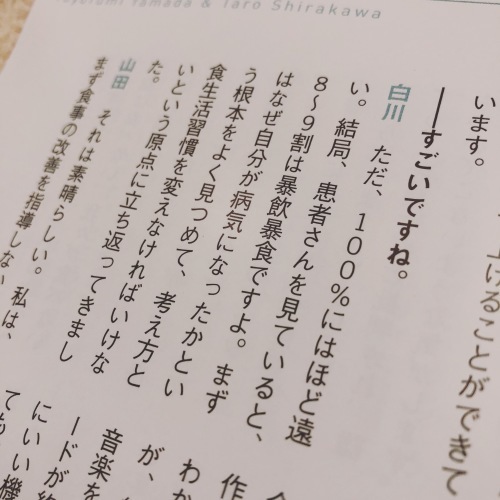 Yamada & Taro Shirakawa
げることができて
います。
――すごいですね。
白川　ただ、100%にはほど遠
い。結局、患者さんを見ていると、
8〜9割は暴飲暴食ですよ。まず
はなぜ自分が病気になったかとい
う根本をよく見つめて、考え方と
食生活習慣を変えなければいけな
いという原点に立ち返ってきまし
た。
山田　それは素晴らしい。私は、
まず食事の改善を指導しな
作
わか
が、
音楽を
ードが
にいい機